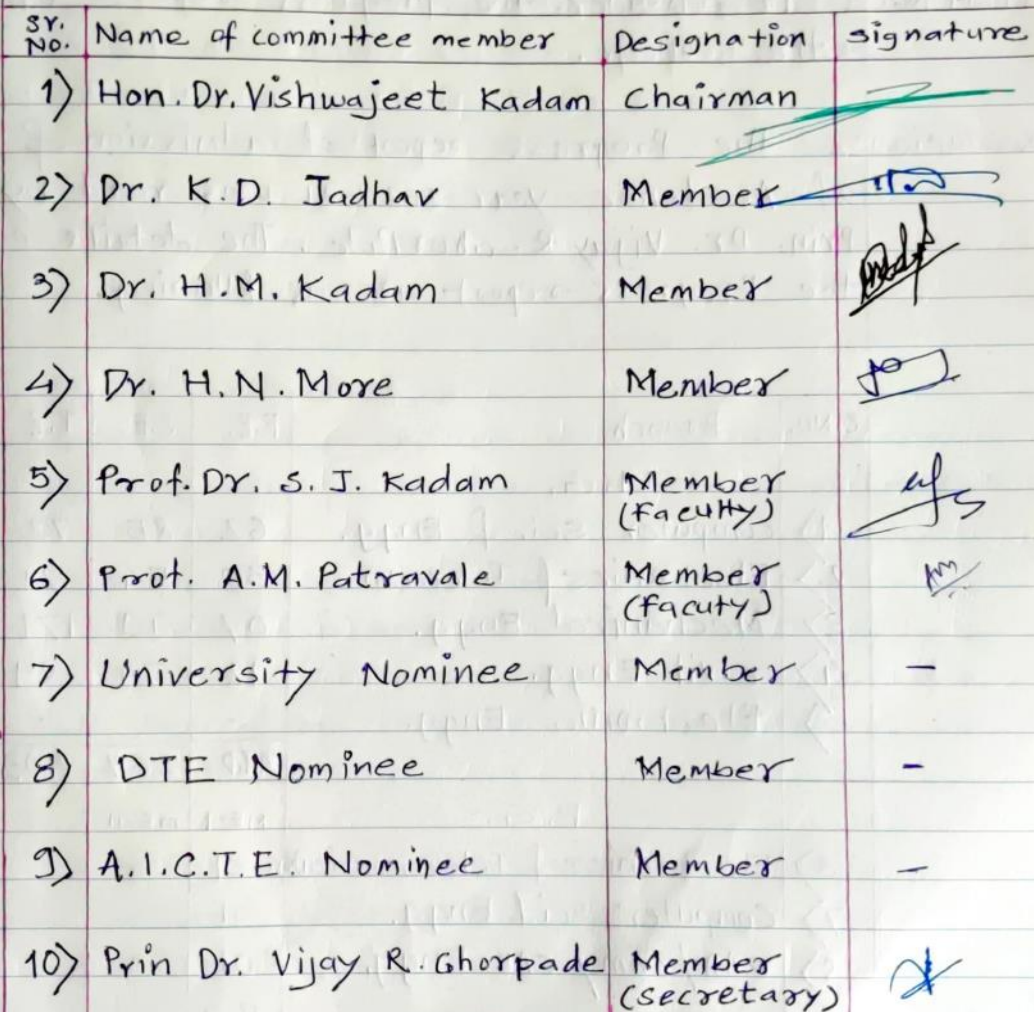 Sr. No. Name of committee member Designation signature
1) Hon. Dr. Vishwajeet Kadam Chairman
2) Dr. K.D. Jadhav Member
3) Dr. H.M. Kadam Member
4) Dr. H.N. More Member
5) Prof. Dr. S. J. Kadam Member
(Faculty)
6) Prof. A.M. Patravale Member
(facuty)
7) University Nominee Member –
8) DTE Nominee Member –
9) A.I.C.T.E. Nominee Member –
10) Prin Dr. Vijay R. Ghorpade Member
(secretary)